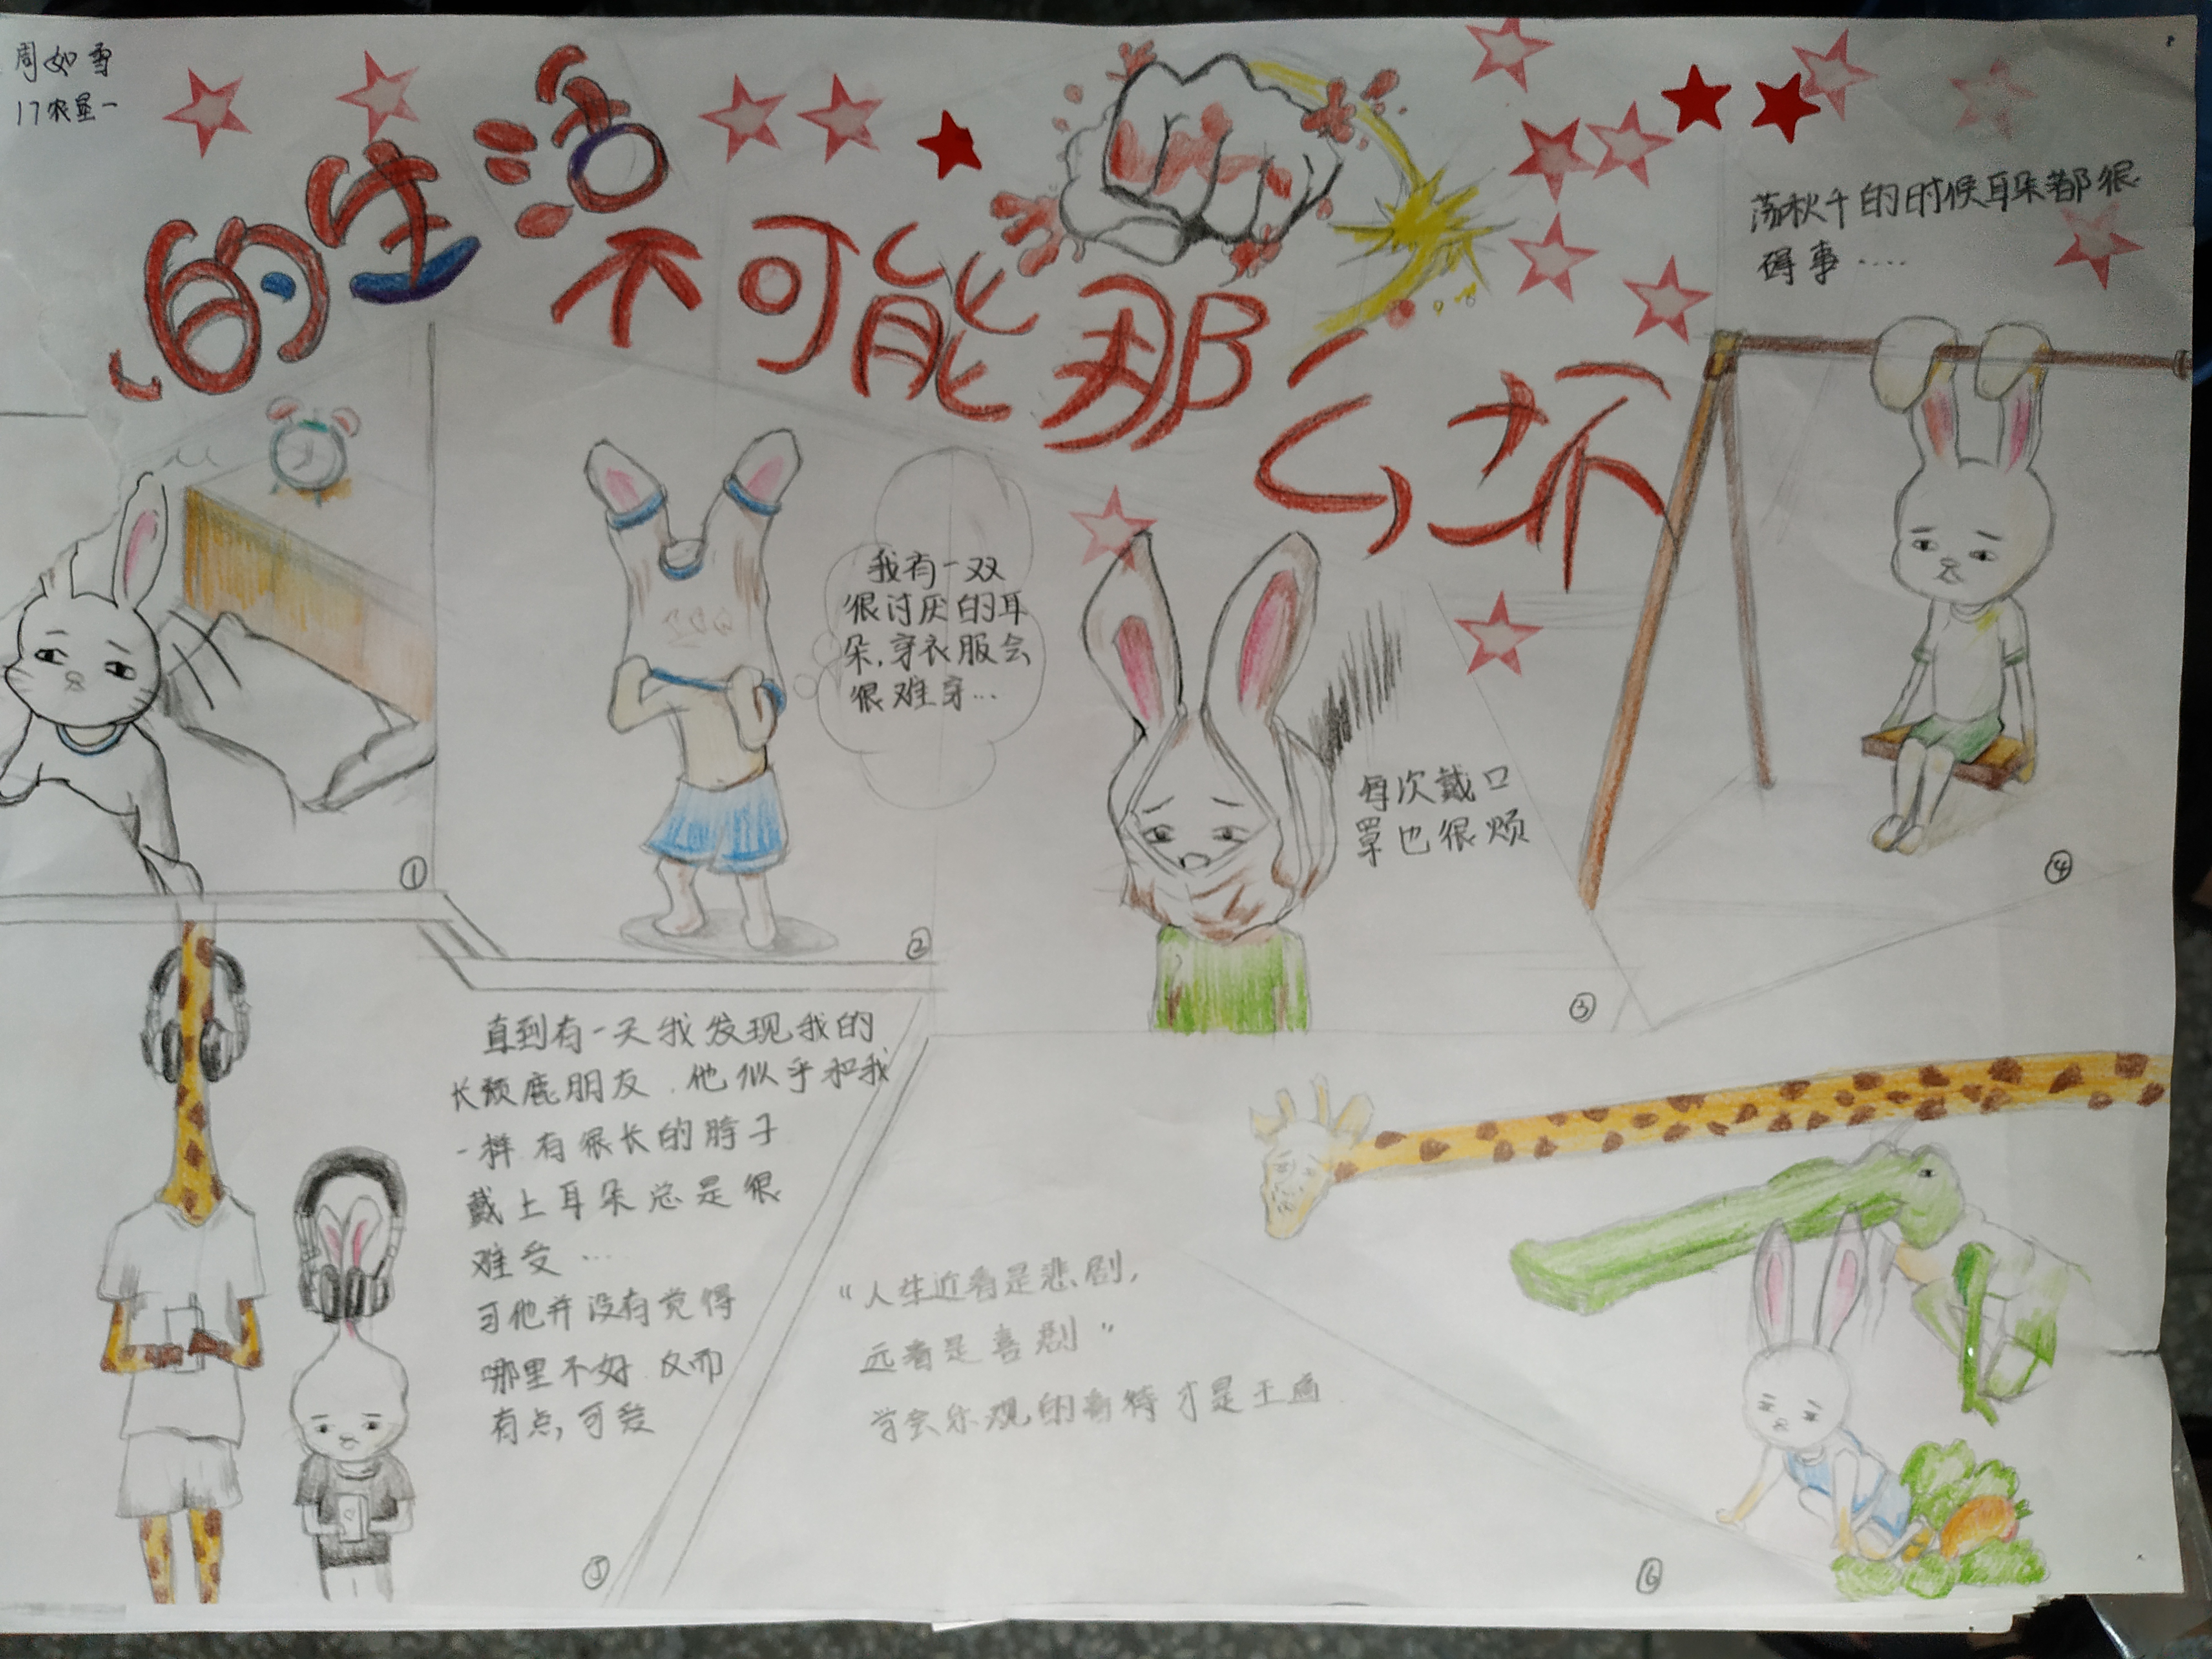 周如雪
17农垦一
的生活
不可能那么坏
荡秋千的时候耳朵都很
碍事....
我有一双
很讨厌的耳
朵,穿衣服会
很难穿...
每次戴口
罩也很烦
①
②
③
④
直到有一天我发现我的
长颈鹿朋友.他似乎和我
一样 有很长的脖子
戴上耳朵总是很
难受...
可他并没有觉得
哪里不好 反而
有点,可爱
⑤
"人生近看是悲剧,
远看是喜剧"
学会乐观的看待才是王道
⑥